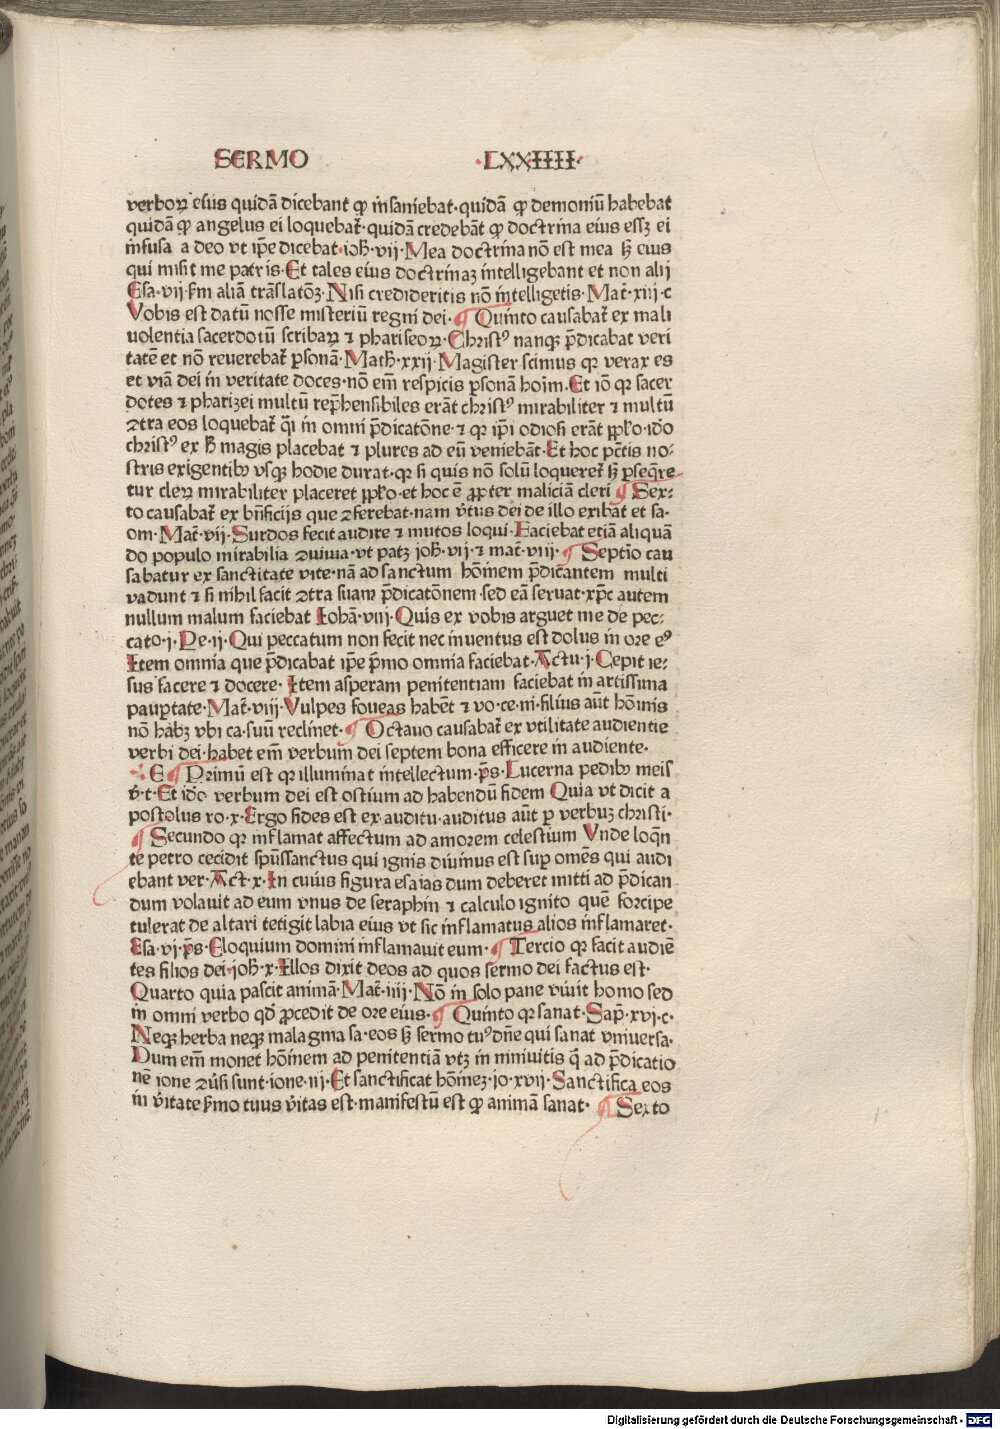 SERMO ·LXXIIII·
verboꝝ eius quidã dicebant ꝙ insaniebat·quidã ꝙ demoniũ habebat
quidã ꝙ angelus ei loquebat̄·quidã credebãt ꝙ doctrina eius essꝫ ei
infusa a deo vt ip̃e dicebat·ioh̃·vij·Mea doctrina nõ est mea sꝫ eius
qui misit me patris·Et tales eius doctrinaꝫ intelligebant et non alij
Esa·vij·s̃m aliã trãslatõꝫ·Nisi credideritis nõ intelligetis·Mat̃·xiij·c
Vobis est datũ nosse misteriũ regni dei·¶ Quinto causabat̄ ex mali
uolentia sacerdotũ scribaꝝ ⁊ phariseoꝝ·Christꝰ nanqꝫ p̃dicabat veri
tatẽ et nõ reuerebat̄ ꝑsonã·Math̃·xxij·Magister scimus qꝛ verax es
et viã dei in veritate doces·nõ em̃ respicis ꝑsonã hoĩm·Et iõ qꝛ sacer
dotes ⁊ pharizei multũ rep̃hensibiles erãt christꝰ mirabiliter ⁊ multũ
ꝯtra eos loquebat̄ q̃i in omni p̃dicatõne·⁊ qꝛ ip̃i odiosi erãt pp̃lo·idõ
christꝰ ex h̃ magis placebat ⁊ plures ad eũ veniebãt·Et hoc pc̃tis no⸗
stris exigentibꝰ vsqꝫ hodie durat·qꝛ si quis nõ solũ loqueret̄ sꝫ ꝑseq̃re⸗
tur cleꝝ mirabiliter placeret pp̃lo·et hoc ẽ ꝓpter maliciã cleri ¶ Sex⸗
to causabat̄ ex bñficijs que ꝯferebat·nam v̓tus dei de illo exibat et sa⸗
om·Mat̃·vij·Surdos fecit audire ⁊ mutos loqui·Faciebat etiã aliquã
do populo mirabilia ꝯuiuia·vt patꝫ ioh̃·vij·⁊ mat̃·viij·¶ Septĩo cau
sabatur ex sanctitate vite·nã ad sanctum hoĩnem p̃dicantem multi
vadunt ⁊ si nihil facit ꝯtra suam p̃dicatõnem·sed eã seruat·xp̃c autem
nullum malum faciebat Iohã·viij·Quis ex vobis arguet me de pec⸗
cato·j·Pe·ij·Qui peccatum non fecit nec inuentus est dolus in ore eꝰ
Item omnia que p̃dicabat ip̃e p̃mo omnia faciebat·Actu·j·Cepit ie⸗
sus facere ⁊ docere·Item asperam penitentiam faciebat in artissima
pauꝑtate·Mat̃·viij·Vulpes foueas habẽt ⁊ vo·ce·ni·filius aũt hoĩnis
nõ habꝫ vbi ca·suũ reclinet·¶ Octauo causabat̄ ex vtilitate audientie
verbi dei·habet em̃ verbum dei septem bona efficere in audiente·
·:E ¶ Primũ est qꝛ illuminat intellectum·p̃s·Lucerna pedibꝰ meis
v̓·t·Et idõ verbum dei est ostium ad habendũ fidem Quia vt dicit a
postolus ro·x·Ergo fides est ex auditu·auditus aũt ꝑ verbuꝫ christi·
¶ Secundo qꝛ inflamat affectum ad amorem celestium Vnde loqñ
te petro cecidit sp̃ussanctus qui ignis diuinus est suꝑ omẽs qui audi
ebant ver·Act·x·In cuius figura esaias dum deberet mitti ad p̃dican
dum volauit ad eum vnus de seraphin ⁊ calculo ignito quẽ forcipe
tulerat de altari tetigit labia eius vt sic inflamatus alios inflamaret·
Esa·vj·p̃s·Eloquium domini inflamauit eum·¶ Tercio qꝛ facit audiẽ
tes filios dei·ioh̃·x·Illos dixit deos ad quos sermo dei factus est·
Quarto quia pascit animã·Mat̃·iiij·Nõ in solo pane viuit homo sed
in omni verbo qđ ꝓcedit de ore eius·¶ Quinto qꝛ sanat·Sap̃·xvj·c·
Neqꝫ herba neqꝫ malagma sa·eos sꝫ sermo tuꝰ dñe qui sanat vniuersa·
Dum em̃ monet hoĩnem ad penitentiã vtꝫ in niniuitis q̃ ad p̃dicatio
nẽ ione ꝯũsi sunt·ione·iij·Et sanctificat hoĩneꝫ·io·xvij·Sanctifica eos
in v̓itate s̓mo tuus v̓itas est·manifestũ est ꝙ animã sanat· ¶ Sexto
Digitalisierung gefördert durch die Deutsche Forschungsgemeinschaft · DFG